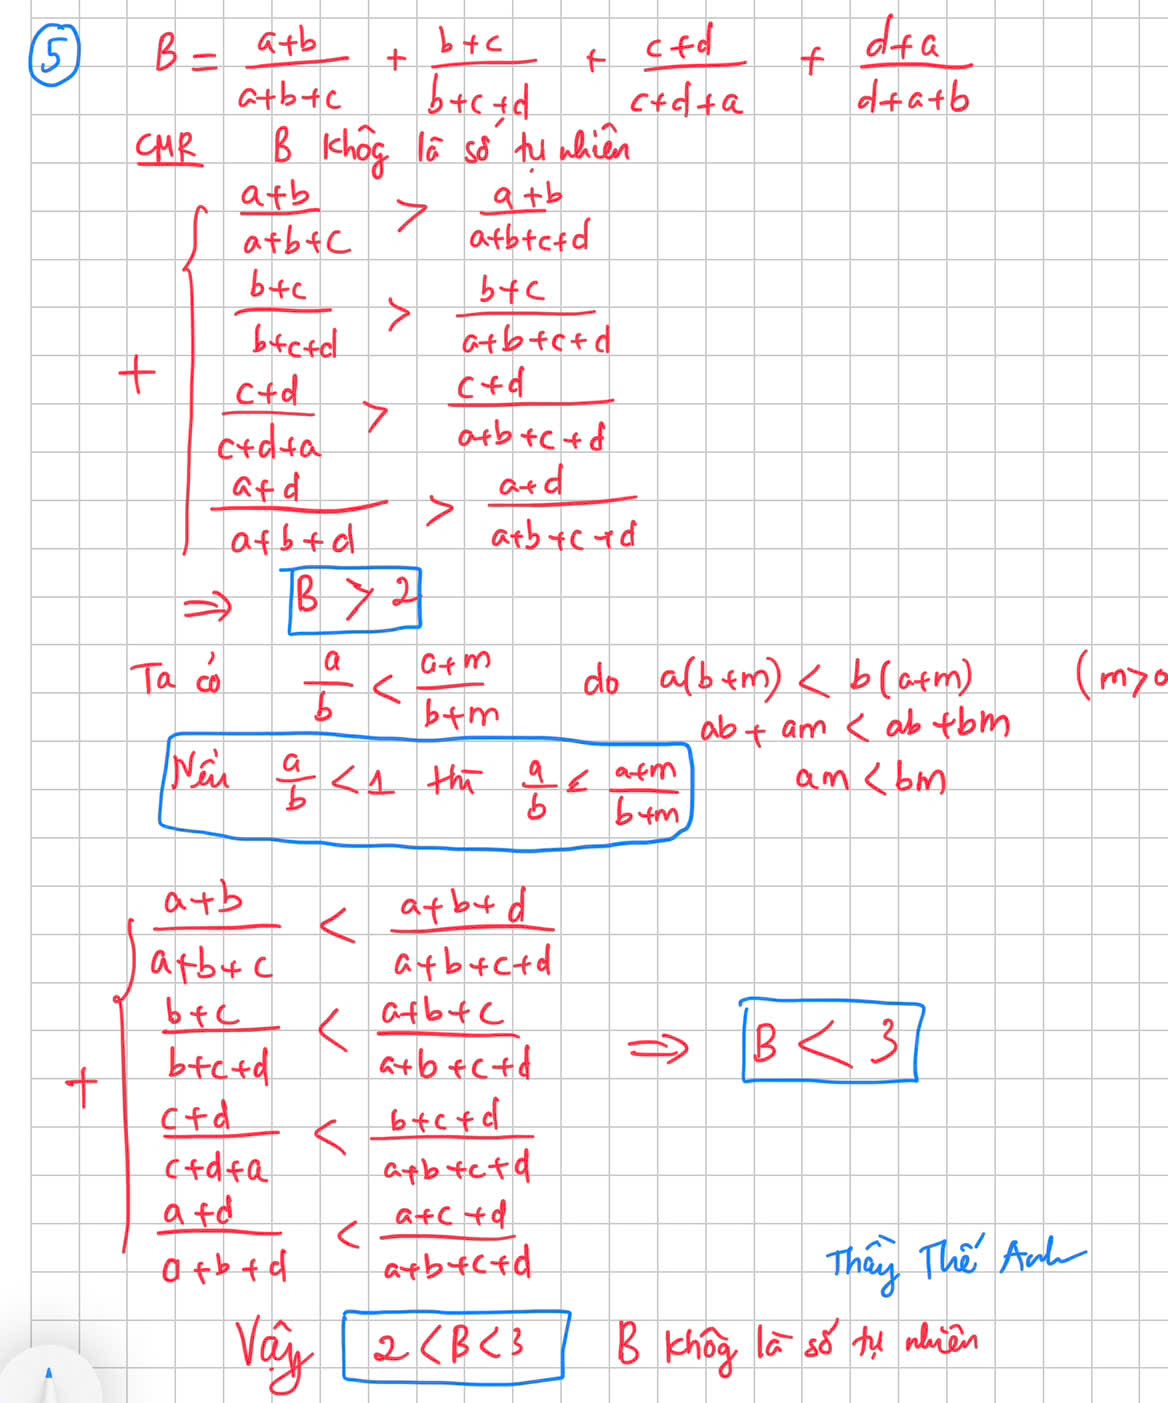 ⑤ B = (a+b)/(a+b+c) + (b+c)/(b+c+d) + (c+d)/(c+d+a) + (d+a)/(d+a+b)
CMR B không là số tự nhiên
(a+b)/(a+b+c) > (a+b)/(a+b+c+d)
(b+c)/(b+c+d) > (b+c)/(a+b+c+d)
+
(c+d)/(c+d+a) > (c+d)/(a+b+c+d)
(a+d)/(a+b+d) > (a+d)/(a+b+c+d)
⇒ B > 2
Ta có a/b < (a+m)/(b+m) do a(b+m) < b(a+m) (m>0
ab + am < ab + bm
am < bm
Nếu a/b < 1 thì a/b < (a+m)/(b+m)
(a+b)/(a+b+c) < (a+b+d)/(a+b+c+d)
(b+c)/(b+c+d) < (a+b+c)/(a+b+c+d) ⇒ B < 3
+
(c+d)/(c+d+a) < (b+c+d)/(a+b+c+d)
(a+d)/(a+b+d) < (a+c+d)/(a+b+c+d)
Thầy Thế Anh
Vậy 2 < B < 3 B không là số tự nhiên